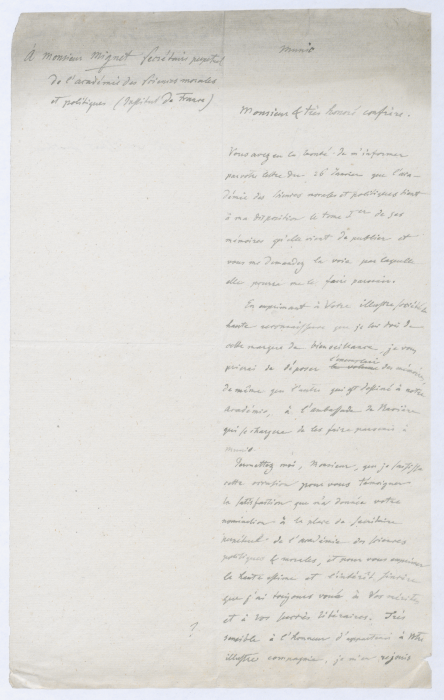 à Monsieur Mignet Secrétaire perpétuel
de l'académie des Sciences morales
et politiques (Institut de France)
Munic
Monsieur & très honoré confrère.
Vous avez eu la bonté de m'informer
par votre lettre du 26 Janvier que l'aca-
démie des sciences morales et politiques tient
à ma disposition le tome 1er de ses
mémoires qu'elle vient de publier et
vous me demandez la voie par laquelle
elle pourra me le faire parvenir.
En exprimant à Votre illustre société la
haute reconnaissance que je lui dois de
cette marque de bienveillance, je vous
prierai de déposer l'exemplaire des mémoires,
de même que l'autre qui est destiné à notre
académie, à l'ambassade de Bavière
qui se chargera de les faire parvenir à
Munic.
Permettez moi, Monsieur, que je saisisse
cette occasion pour vous témoigner
la satisfaction que m'a donnée votre
nomination à la place de secrétaire
perpétuel de l'académie des sciences
politiques & morales, et pour vous exprimer
la haute estime et l'intérêt sincère
que j'ai toujours voués à Vos mérites
et à vos succès littéraires. Très
sensible à l'honneur d'appartenir à Votre
illustre compagnie, je m'en réjouis